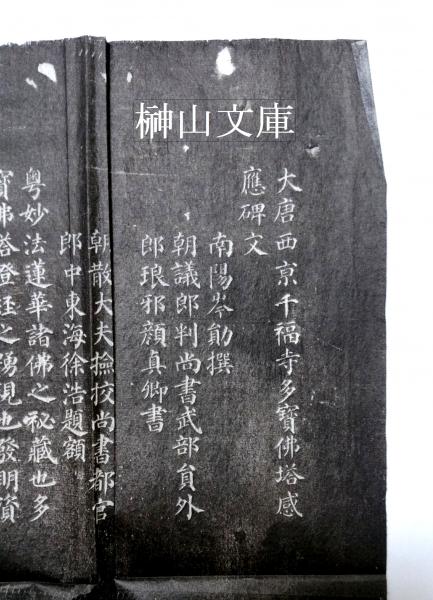 榊山文庫
大唐西京千福寺多寶佛塔感
應碑文
南陽岑勛撰
朝議郎判尚書武部員外
郎琅邪顏真卿書
朝散大夫撿挍尚書都官
郎中東海徐浩題額
粵妙法蓮華諸佛之祕藏也多
寶佛塔證經之踴現也發明資